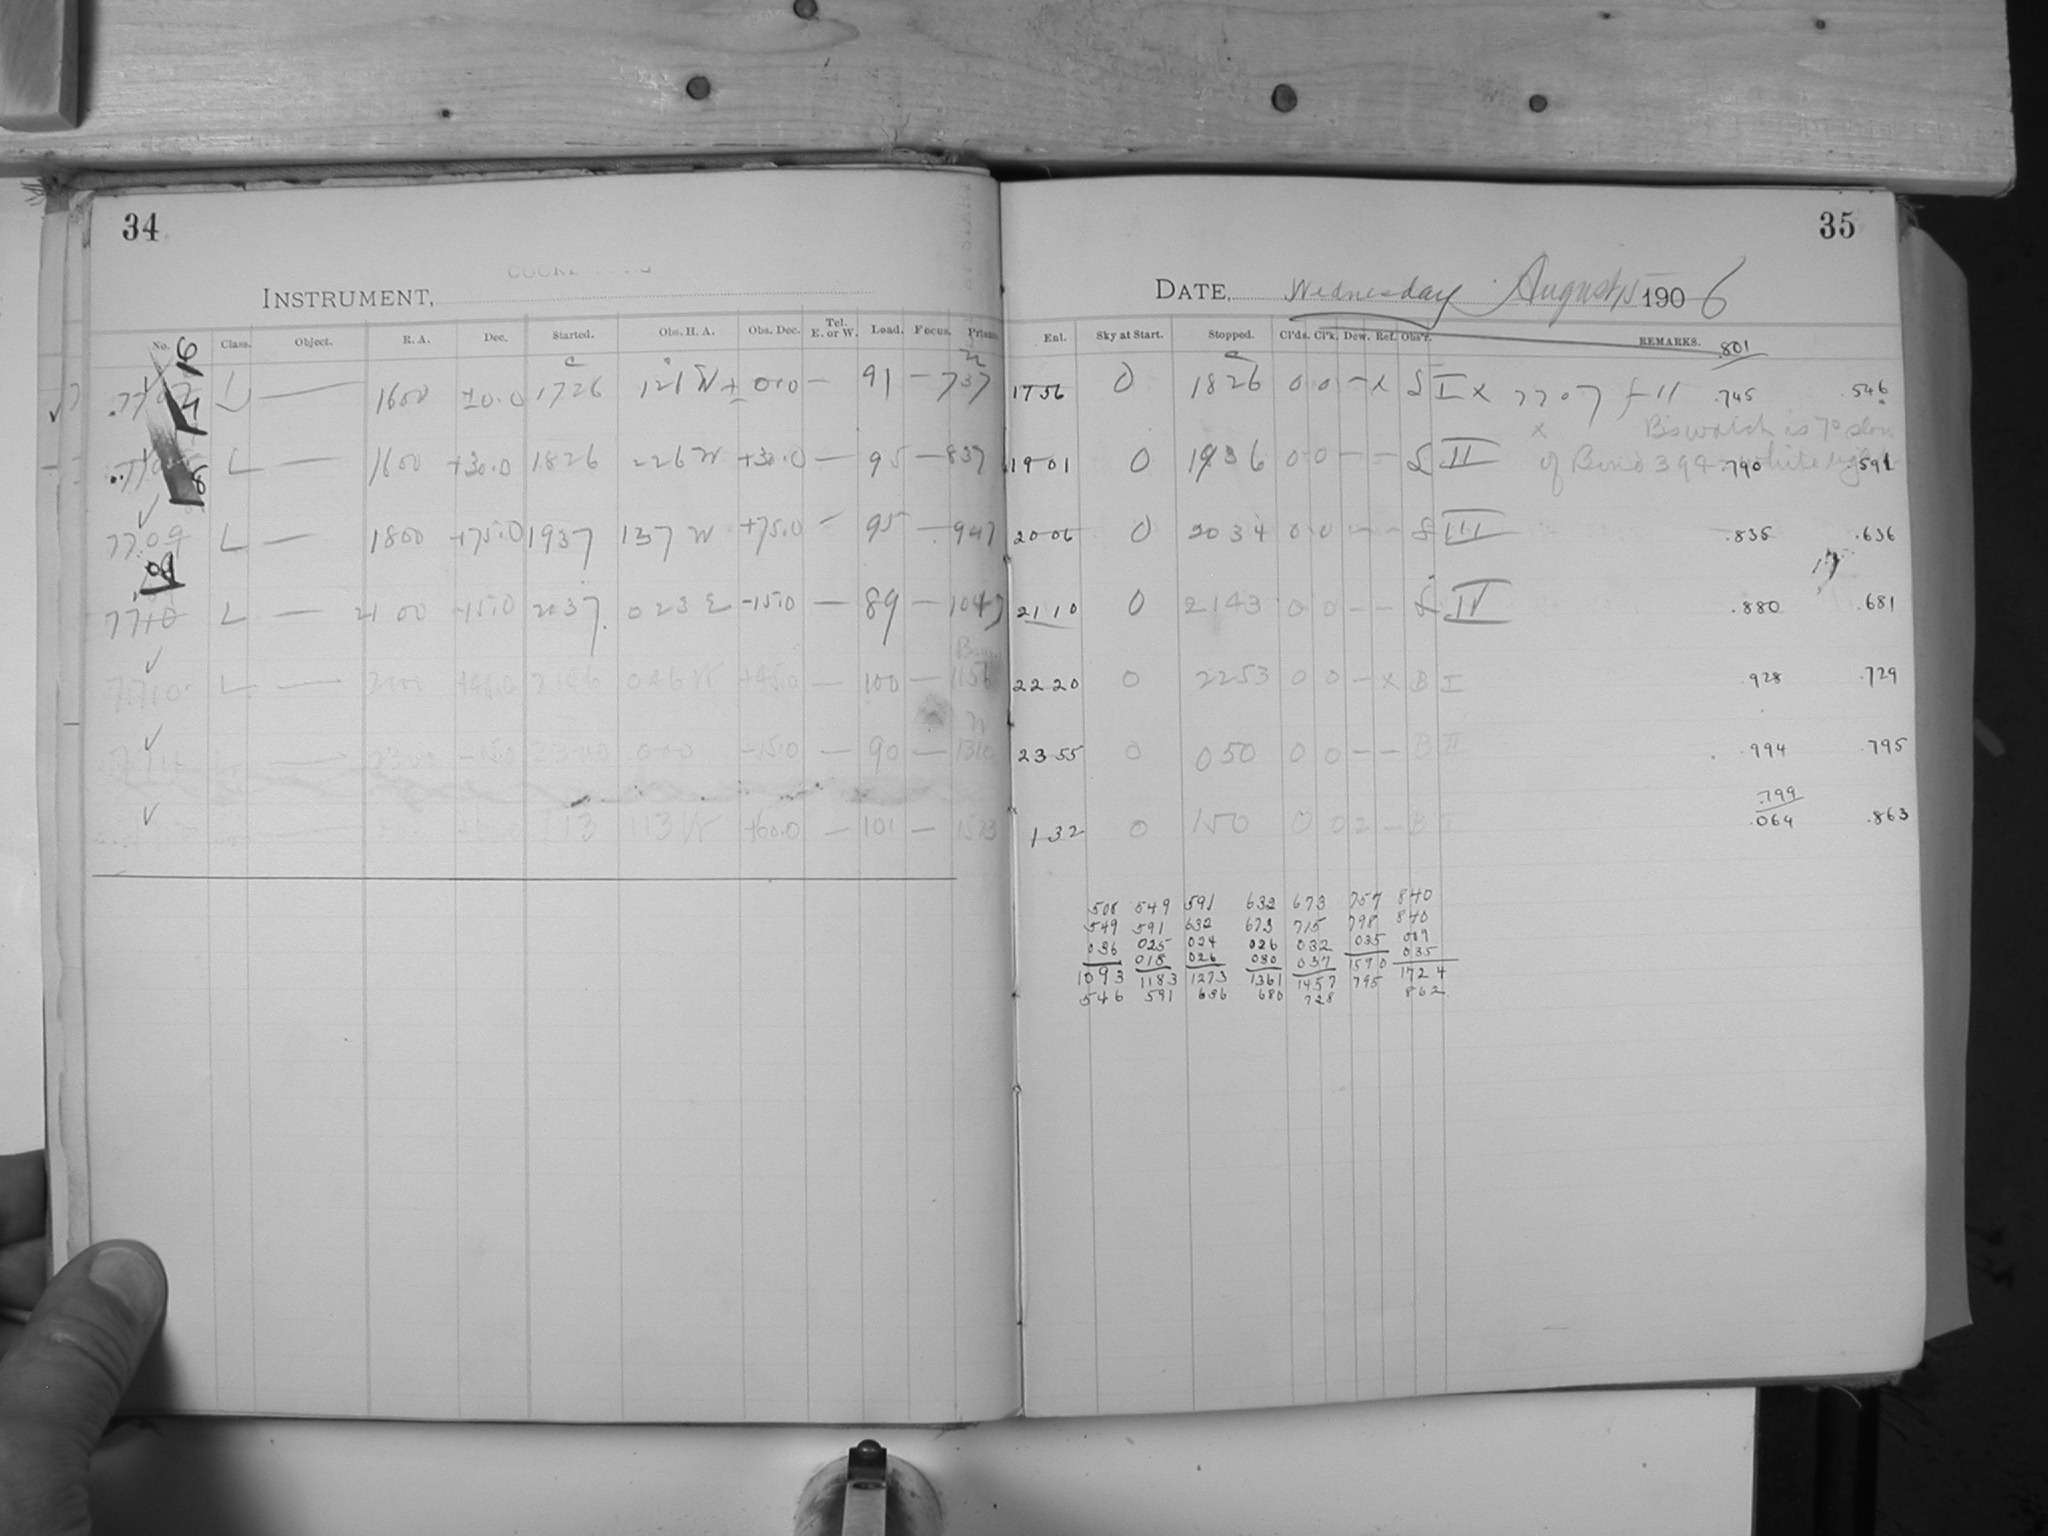 34
INSTRUMENT,
No. Class. Object. R. A. Dec. Started. Obs. H. A. Obs. Dec. Tel. E. or W. Load. Focus.
L — 1600 ±0.0 1726 121 W ± 00.0 — 91 — 737
L — 1600 +30.0 1826 226 W +30.0 — 95 — 837
7709 L — 1800 +75.0 1937 137 W +75.0 — 95 — 947
09
7710 L — 21 00 -15.0 2037 023 E -15.0 — 89 — 1047
7710 L — 2100 +45.0 2146 046 W +45.0 — 100 — 1156
— 2300 -15.0 2340 000 -15.0 — 90 — 1310
— +60.0 113 113 W +60.0 — 101 — 1523
35
DATE, Wednesday August 15 1906
Enl. Sky at Start. Stopped. Cl'ds. Cl'k. Dew. Ref. Obs'r. REMARKS. .801
17 56 0 1826 0 0 — x L I x 7707 f 11 .745 .546
x B's watch is 70 slow
19 01 0 1936 0 0 — — L II of Bond 394 .790 white .591
20 06 0 2034 0 0 — — L III .835 .636
21 10 0 2143 0 0 — — L IV .880 .681
22 20 0 2253 0 0 — x B I .928 .729
23 55 0 050 0 0 — — B II .994 .795
.799
1 32 0 150 0 0 2 — B I .064 .863
508 549 591 632 673 757 840
549 591 632 673 715 798 840
036 025 024 026 032 035 009
018 026 030 037 1590 035
1093 1183 1273 1361 1457 795 1724
546 591 636 680 728 862